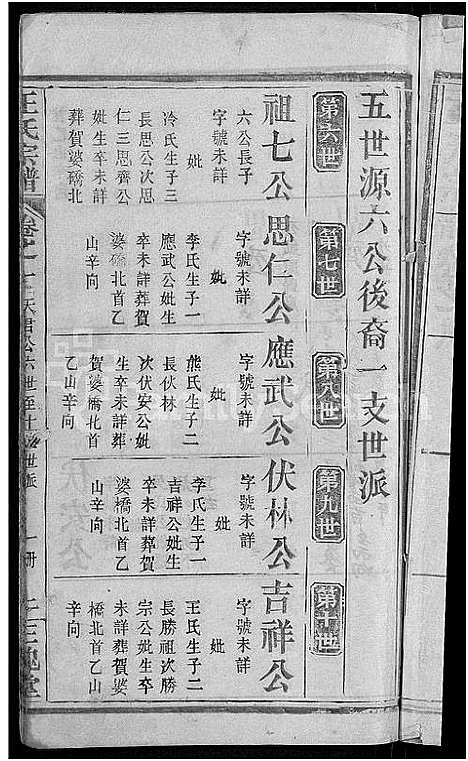 五世源六公後裔一支世派
第六世
第七世
第八世
第九世
第十世
祖七公
六公長子
字號未詳
妣
冷氏生子三
長思公次思
仁三思齊公
妣生卒未詳
葬賀婆礄北
思仁公
字號未詳
妣
李氏生子一
應武公妣生
卒未詳葬賀
婆橋北首乙
山辛向
應武公
字號未詳
妣
熊氏生子二
長伏林
次伏安公妣
生卒未詳葬
賀婆橋北首
乙山辛向
伏林公
字號未詳
妣
李氏生子一
吉祥公妣生
卒未詳葬賀
婆橋北首乙
山辛向
吉祥公
字號未詳
妣
王氏生子二
長勝祖次勝
宗公妣生卒
未詳葬賀婆
橋北首乙山
辛向
王氏宗譜
三槐堂